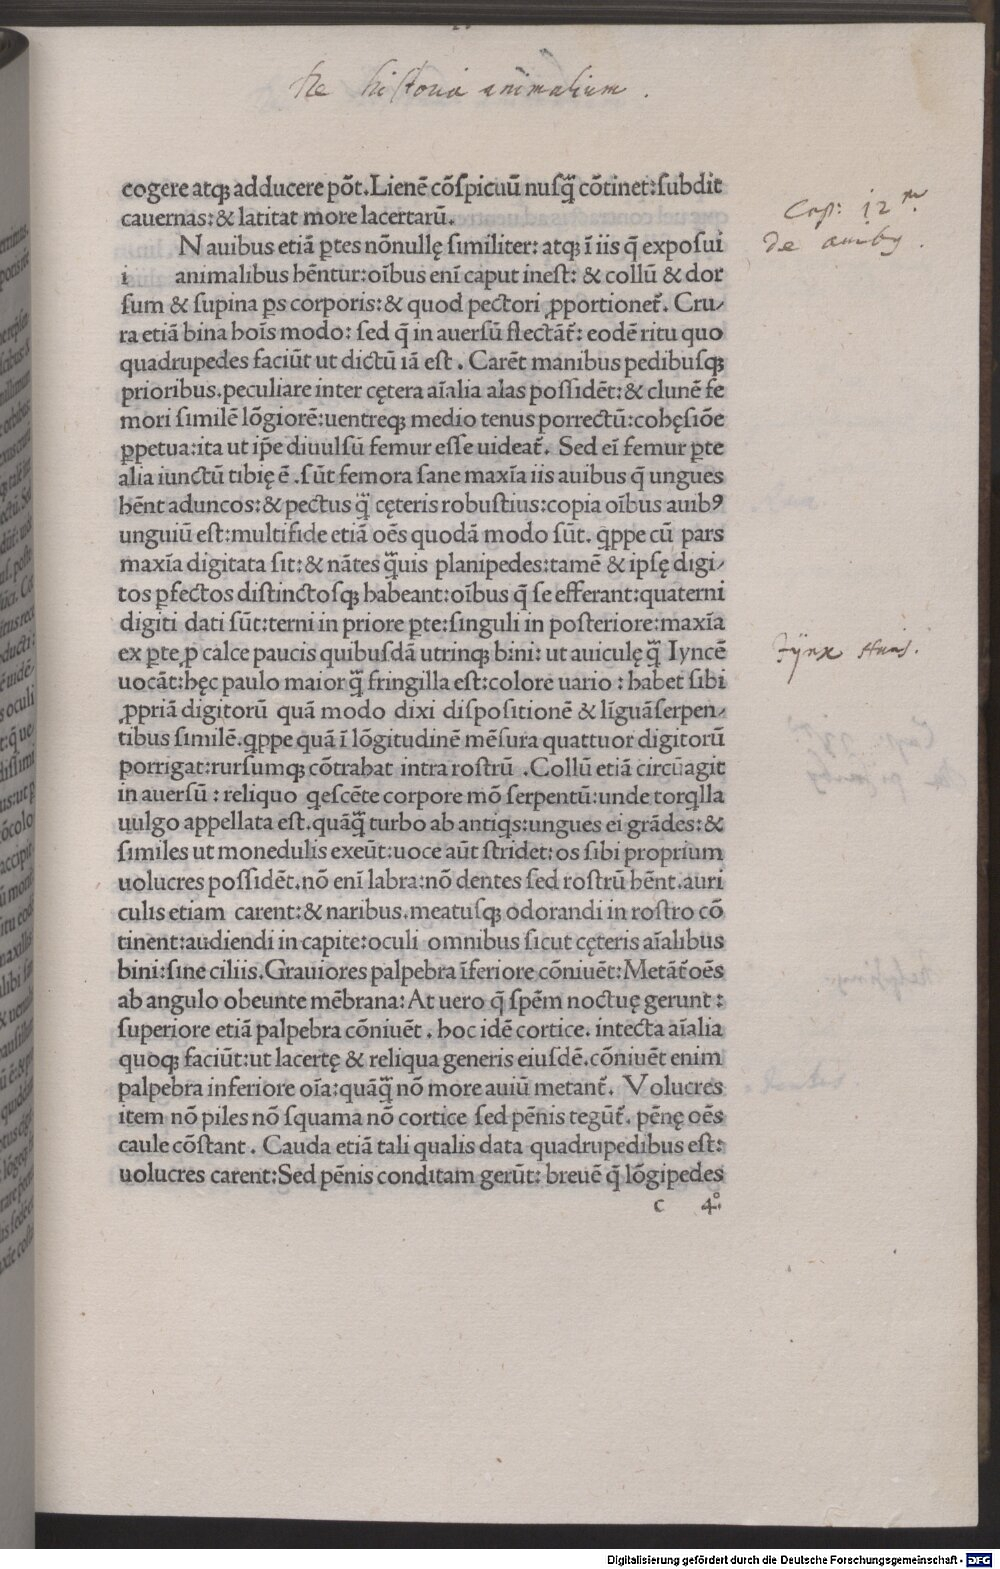 De historia animalium.
cogere atq; adducere põt. Lienẽ cõspicuũ nusq̃ cõtinet: subdit
cauernas: & latitat more lacertarũ.
N auibus etiã ꝑtes nõnullę similiter: atq; ĩ iis q̃ exposui
i animalibus hẽntur: oĩbus enĩ caput inest: & collũ & dor
sum & supina ps corporis: & quod pectori ꝓportionet̃. Cru-
ra etiã bina hoĩs modo: sed q̃ in auersũ flectãt̃: eodẽ ritu quo
quadrupedes faciũt ut dictũ iã est. Carẽt manibus pedibusq;
prioribus. peculiare inter cętera aĩalia alas possidẽt: & clunẽ fe
mori similẽ lõgiorẽ: uentreq; medio tenus porrectũ: cohęsiõe
ꝑpetua: ita ut ip̃e diuulsũ femur esse uideat̃. Sed eĩ femur ꝑte
alia iunctũ tibię ẽ. sũt femora sane maxĩa iis auibus q̃ ungues
hẽnt aduncos: & pectus q̃ cęteris robustius: copia oĩbus auibꝰ
unguiũ est: multifide etiã oẽs quodã modo sũt. qppe cũ pars
maxĩa digitata sit: & nãtes q̃uis planipedes: tamẽ & ipsę digi-
tos ꝑfectos distinctosq; habeant: oĩbus q̃ se efferant: quaterni
digiti dati sũt: terni in priore ꝑte: singuli in posteriore: maxĩa
ex ꝑte ꝓ calce paucis quibusdã utrinq; bini: ut auiculę q̃ Iyncẽ
uocãt: hęc paulo maior q̃ fringilla est: colore uario: habet sibi
ꝓpriã digitorũ quã modo dixi dispositionẽ & lĩguã serpen-
tibus similẽ. qppe quã ĩ lõgitudinẽ mẽsura quattuor digitorũ
porrigat: rursumq; cõtrahat intra rostrũ. Collũ etiã circũagit
in auersũ: reliquo qescẽte corpore mõ serpentũ: unde torqlla
uulgo appellata est. quãq̃ turbo ab antiqs: ungues ei grãdes: &
similes ut monedulis exeũt: uoce aũt stridet: os sibi proprium
uolucres possidẽt. nõ enĩ labra: nõ dentes sed rostrũ hẽnt. auri
culis etiam carent: & naribus. meatusq; odorandi in rostro cõ
tinent: audiendi in capite: oculi omnibus sicut cęteris aĩalibus
bini: sine ciliis. Grauiores palpebra ĩferiore cõniuẽt: Metãt̃ oẽs
ab angulo obeunte mẽbrana: At uero q̃ spẽm noctuę gerunt:
superiore etiã palpebra cõniuẽt. hoc idẽ cortice. intecta aĩalia
quoq; faciũt: ut lacertę & reliqua generis eiusdẽ. cõniuẽt enim
palpebra inferiore oĩa: quãq̃ nõ more auiũ metant̃. Volucres
item nõ piles nõ squama nõ cortice sed pẽnis tegũt̃. pẽnę oẽs
caule cõstant. Cauda etiã tali qualis data quadrupedibus est:
uolucres carent: Sed pẽnis conditam gerũt: breuẽ q̃ lõgipedes
c 4°
Cap: 12m
De auibꝫ.
Jÿnx Auis.
Digitalisierung gefördert durch die Deutsche Forschungsgemeinschaft - DFG